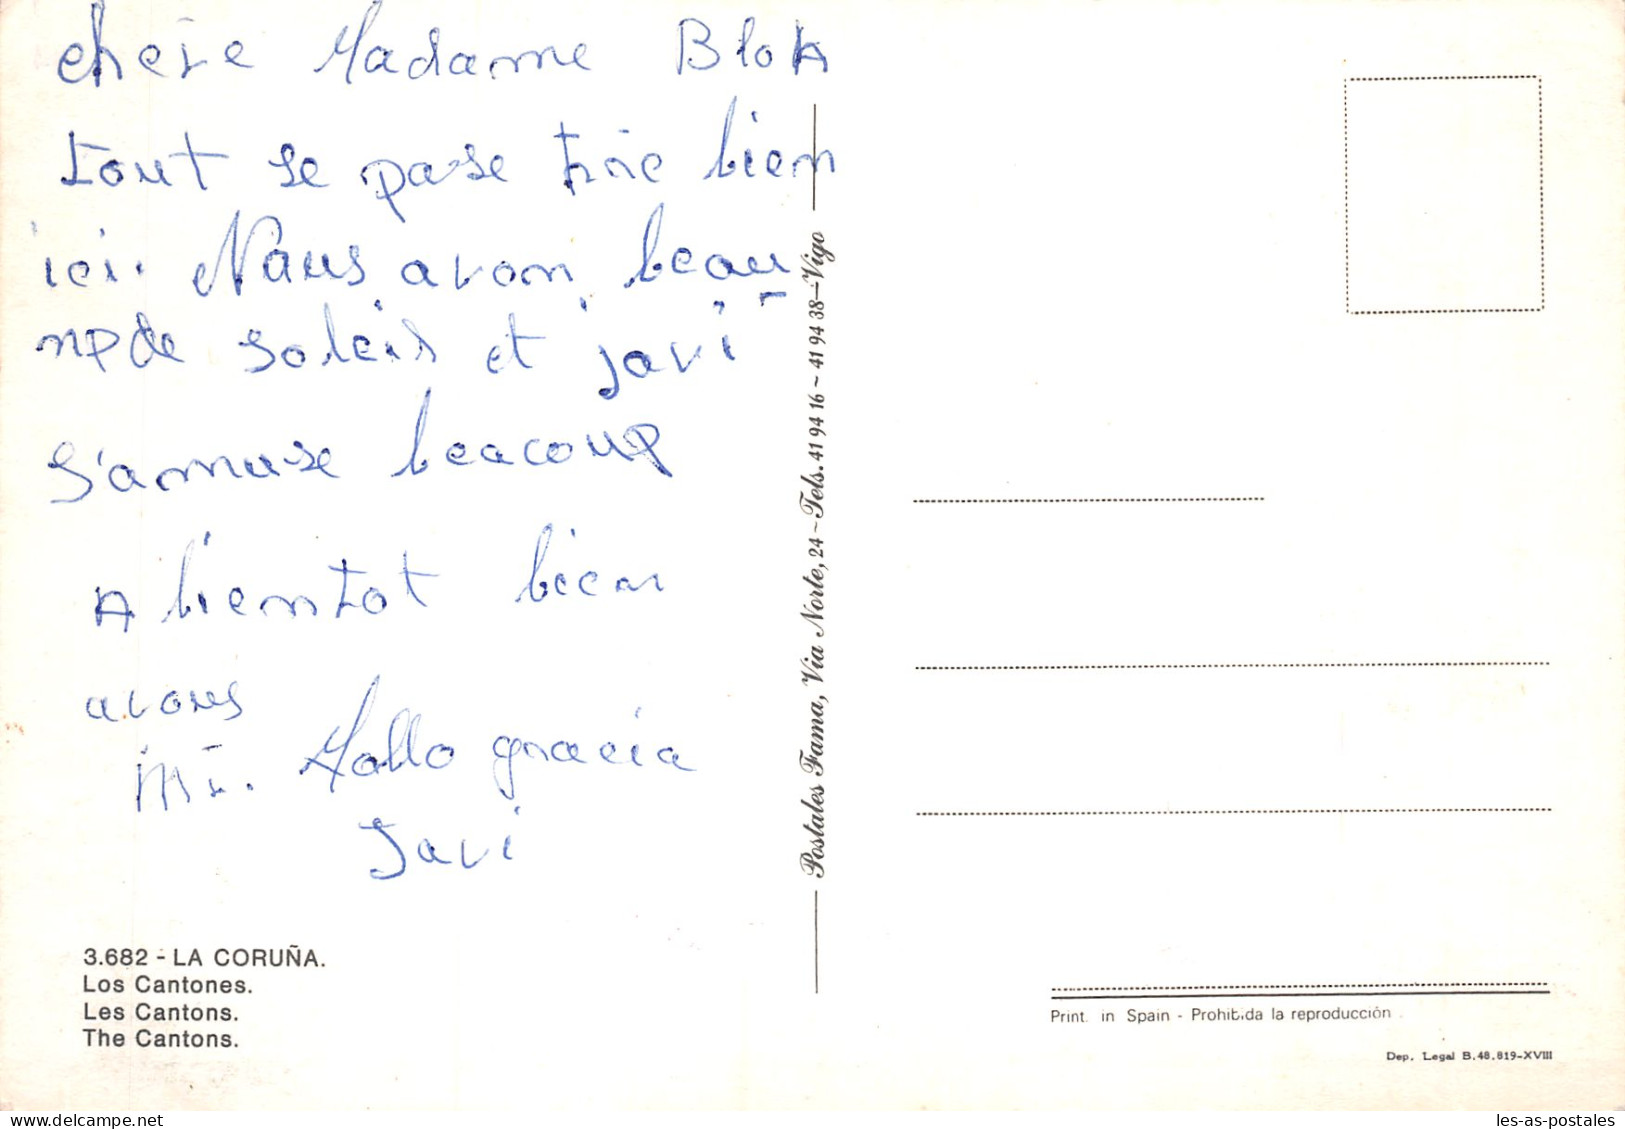 chère Madame Blok
tout se passe très bien
ici. Nous avon beau
de soleil et javi
s'amuse beacoup
A bientot bien
avous
Mr. Mollo gracia
Javi
3.682 - LA CORUÑA.
Los Cantones.
Les Cantons.
The Cantons.
Postales Fama, Via Norte, 24 - Tels. 41 94 16 - 41 94 38 - Vigo
Print. in Spain - Prohibida la reproducción
Dep. Legal B.48.819-XVIII
les-as-postales